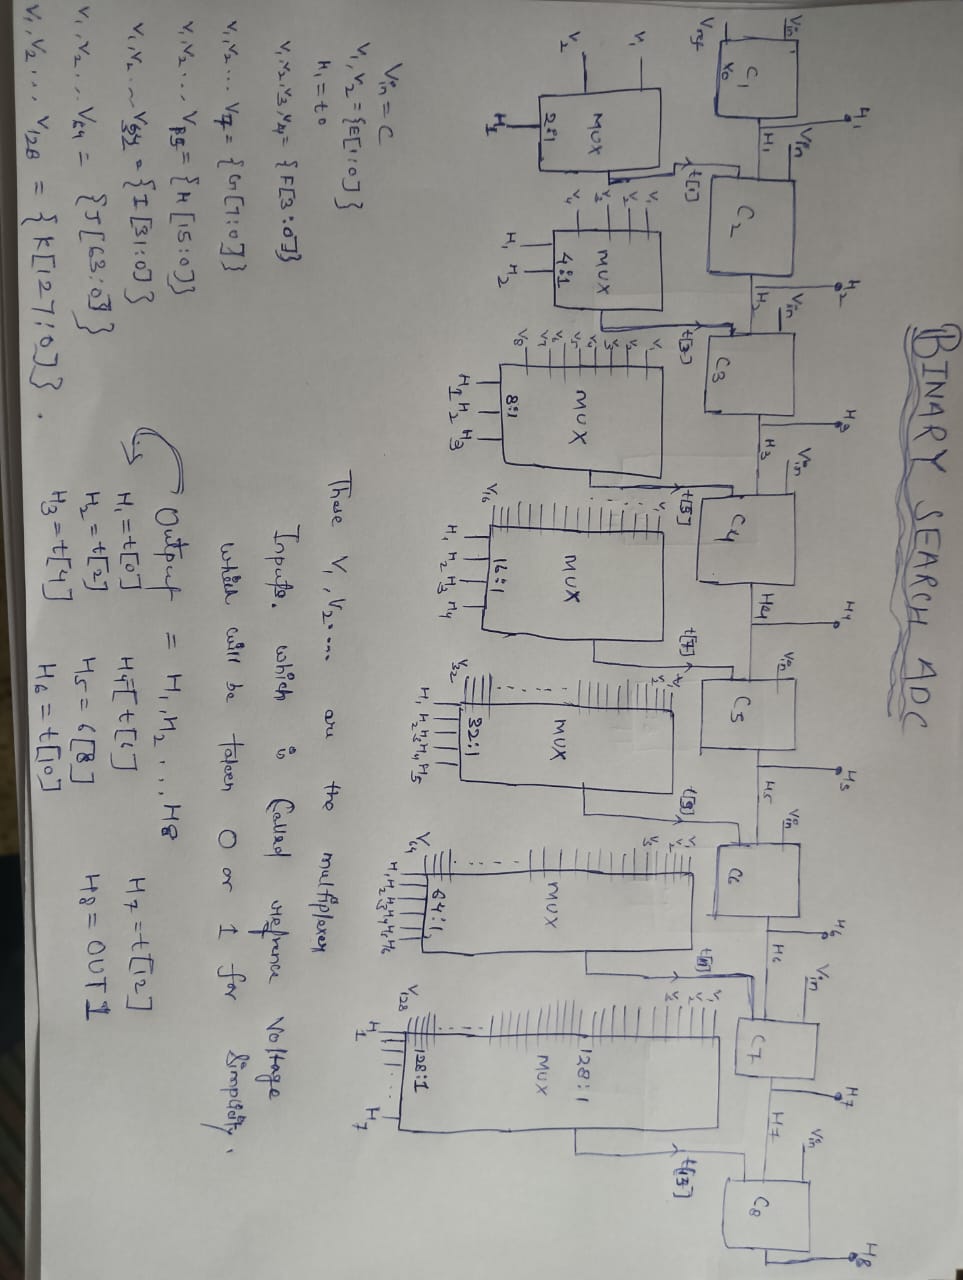 BINARY SEARCH ADC
Vin
Vref
C1
V0
H1
H1
Vin
C2
H2
H2
Vin
C3
H3
H3
Vin
C4
H4
H4
Vin
C5
H5
H5
Vin
C6
H6
Vin
C7
H7
H7
Vin
C8
H8
t[1]
t[3]
t[5]
t[7]
t[9]
t[11]
t[13]
V1
V2
MUX
2:1
H1
V1
V2
V3
V4
MUX
4:1
H1 H2
V1
V2
V3
V4
V5
V6
V7
V8
MUX
8:1
H1 H2 H3
V1
V16
MUX
16:1
H1 H2 H3 H4
V1
V2
V32
MUX
32:1
H1 H2 H3 H4 H5
V1
V2
V3
V64
MUX
64:1
H1 H2 H3 H4 H5 H6
V1
V2
V3
V128
128:1
MUX
128:1
H1 .... H7
Vin = C
V1, V2 = {E[1:0]}
H1 = t0
V1, V2, V3, V4 = {F[3:0]}
V1, V2 ... = {G[7:0]}
V1, V2 ... = {H[15:0]}
V1, V2 ... = {I[31:0]}
V1, V2 ... V64 = {J[63:0]}
V1, V2 ... V128 = {K[127:0]}.
These V1, V2.... are the multiplexer
Inputs. which is Called reference Voltage
which will be taken 0 or 1 for simplicity.
Output = H1, H2 ... H8
H1 = t[0]
H2 = t[2]
H3 = t[4]
H4 = t[6]
H5 = t[8]
H6 = t[10]
H7 = t[12]
H8 = OUT1